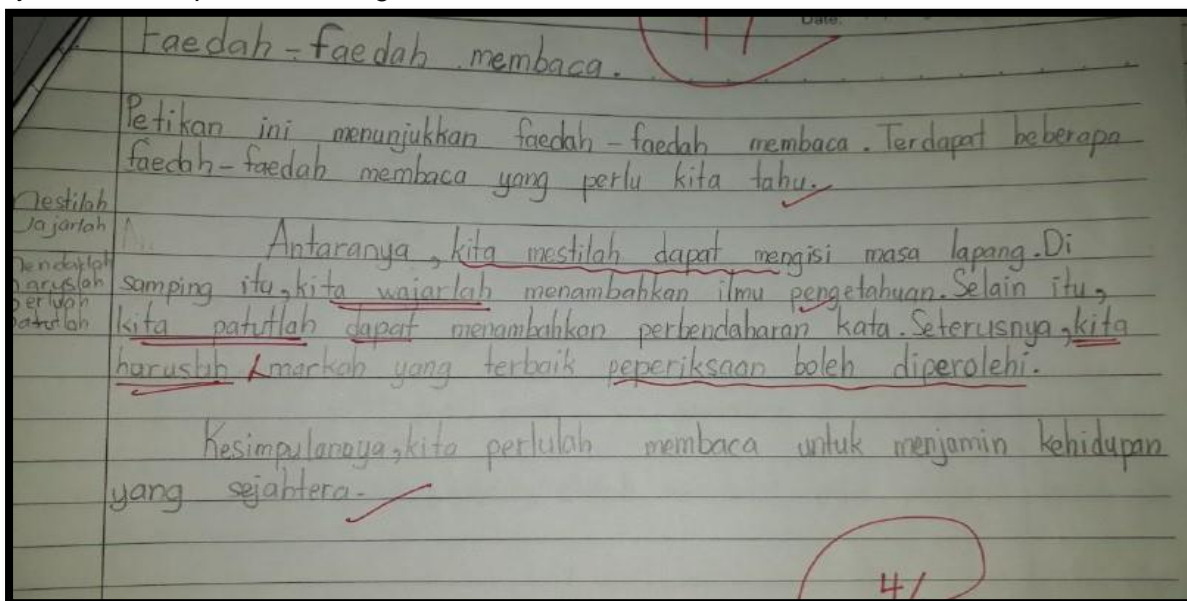 Date:
Faedah-faedah membaca.
Petikan ini menunjukkan faedah-faedah membaca. Terdapat beberapa
faedah-faedah membaca yang perlu kita tahu.
Mestilah
Wajarlah
Hendaklah
haruslah
perlulah
patutlah
Antaranya, kita mestilah dapat mengisi masa lapang. Di
samping itu, kita wajarlah menambahkan ilmu pengetahuan. Selain itu,
kita patutlah dapat menambahkan perbendaharan kata. Seterusnya, kita
haruslah markah yang terbaik peperiksaan boleh diperolehi.
Kesimpulanoya, kita perlulah membaca untuk menjamin kehidupan
yang sejahtera.